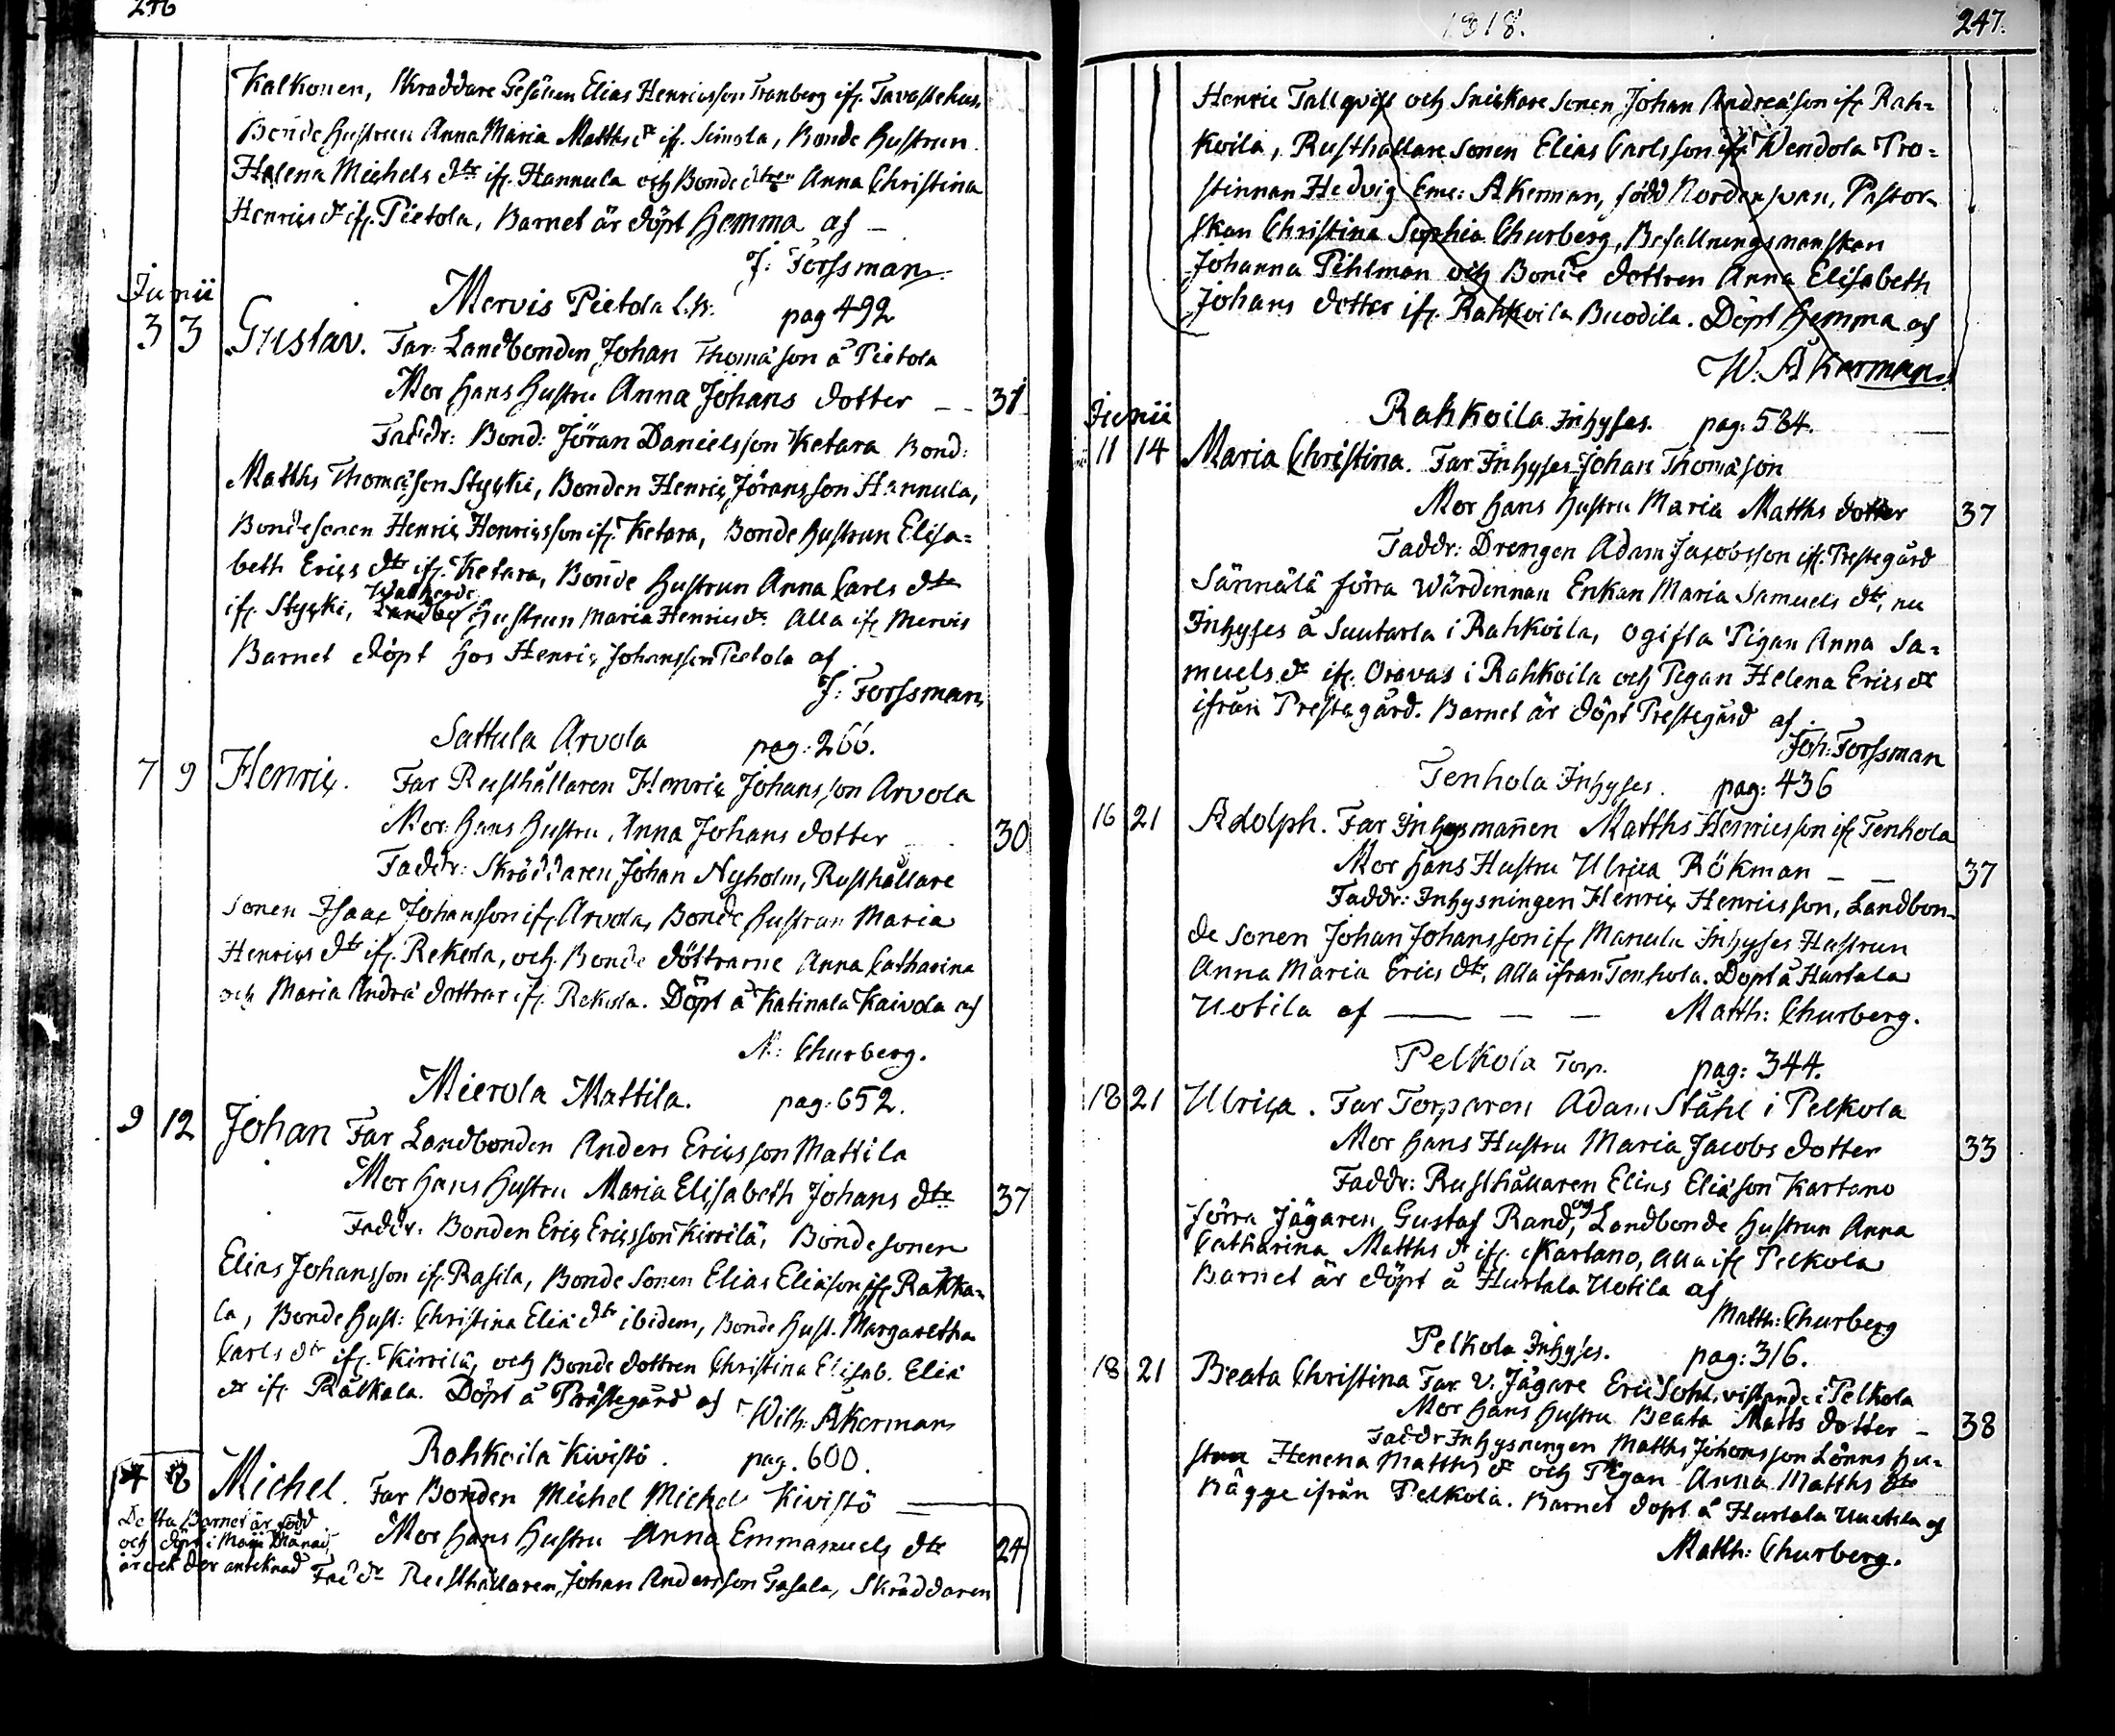 246
Kalkonen, Skräddare Gesällen Elias Henricsson Tranberg ifr. Tavastehus
Bonde Hustrun Anna Maria Matths dr ifr. Simola, Bonde Hustrun
Helena Michels dtr ifr. Hannula och Bonde dtren Anna Christina
Henrics dr ifr. Pietola, Barnet är döpt hemma af –
J: Forssman
Junii
Mervis Pietola L.B. pag 492
3 3 Gustav. Far: Landbonden Johan Thomæson å Pietola
Mor hans hustru Anna Johans dotter – – 31
Faddr: Bond: Jöran Danielsson Ketara Bond:
Matths Thomæson Stycki, Bonden Henric Jöransson Hannula,
Bondesonen Henric Henricsson ifr. Ketara, Bonde hustrun Elisa=
beth Erics dtr ifr. Ketara, Bonde hustrun Anna Carls dtr
ifr Stycki, hustrun Maria Henrics dr. Alla ifr Mervis
Barnet döpt hos Henric Johansson Pietola af
J: Forssman
Sattula Arvola pag: 266.
7 9 Henric. Far Rusthållaren Henric Johansson Arvola
Mor: hans hustru, Anna Johans dotter 30
Faddr: Skräddaren Johan Nyholm, Rusthållare
sonen Isaac Johansson ifr Arvola, Bonde hustrun Maria
Henrics dtr ifr. Rekola, och Bonde döttrarne Anna Catharina
och Maria Andræ dottrar ifr. Rekola. Döpt å Katinala Kaivola af
M: Churberg.
Mierola Mattila. pag: 652.
9 12 Johan Far Landbonden Anders Ericsson Mattila
Mor hans hustru Maria Elisabeth Johans dtr 37
Faddr: Bonden Eric Ericsson Kirrilä, Bonde sonen
Elias Johansson ifr. Rasila, Bonde Sonen Elias Eliæson ifr Räkka=
la, Bonde Hust: Christina Eliæ dtr ibidem, Bonde Hust. Margaretha
Carls dtr ifr. Kirrilä, och Bonde dottren Christina Elisab. Eliæ
dr ifr. Rälkala. Döpt å Prästegård af Wilh: Åkerman
Rahkoila Kivistö. pag. 600.
Michel. Far Bonden Michel Michels Kivistö
Detta Barnet är född
och döpt i Maji Månad,
är ock der antecknad
Mor hans hustru Anna Emmanuels dtr 24
Fadd: Rusthållaren Johan Andersson Sasala, Skräddaren
1818. 247.
Henric Tallqvist och Snickare sonen Johan Andreæson ifr Rah=
koila, Rusthållare sonen Elias Carlsson ifr Wendola Pro=
stinnan Hedvig Eme: Åkerman, född Nordensvan, Pastor=
skan Christina Sophia Churberg, Befallningsmanskan
Johanna Pihlman och Bonde dottren Anna Elisabeth
Johans dotter ifr. Rahkoila Buodila. Döpt hemma af
W. Åkerman
Junii
Rahkoila Inhyses. pag: 584.
11 14 Maria Christina. Far Inhyses Johan Thomæson
Mor hans hustru Maria Matths dotter 37
Faddr: Drengen Adam Jacobsson ifr. Prestegård
Sännälä förra Wärdinnan Enkan Maria Samuels dtr, nu
Inhyses å Suutarla i Rahkoila, ogifta Pigan Anna Sa=
muels dr ifr. Oravas i Rahkoila och Pigan Helena Erics dr
ifrån Prestegård. Barnet är döpt Prestegård af
Joh: Forssman
Tenhola Inhyses. pag: 436
16 21 Adolph. Far Inhysmannen Matths Henricsson ifr Tenhola
Mor hans Hustru Ulrica Rökman – – 37
Faddr: Inhysningen Henric Henricsson, Landbon=
de sonen Johan Johansson ifr Manula Inhyses Hustrun
Anna Maria Erics dtr, Alla ifrån Tenhola. Döpt å Hurtala
Uotila af – – – Matth: Churberg.
Pelkola Torp. pag: 344.
18 21 Ulrica. Far Torparen Adam Ståhl i Pelkola
Mor hans Hustru Maria Jacobs dotter 33
Faddr: Rusthållaren Elias Eliæson Kartano
förra Jägaren Gustaf Rand, og Landbonde hustrun Anna
Catharina Matths dr ifr. Kartano, alla ifr Pelkola
Barnet är döpt å Hurtala Uotila af
Matth: Churberg
Pelkola Inhyses. pag: 316.
18 21 Beata Christina Far V. Jägare Eric Sohl, vistande i Pelkola
Mor hans hustru Beata Matts dotter – 38
Faddr Inhysningen Matths Johansson Lönns hu=
strun Henena Matths dr och Pigan Anna Matths dtr
Bägge ifrån Pelkola. Barnet döpt å Hurtala Uuotila af
Matth: Churberg.